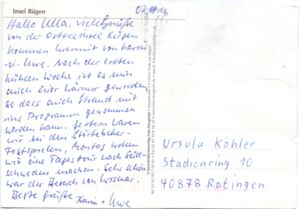 Insel Rügen
Hallo Ulla, viele Grüße
von der Ostseeinsel Rügen
kommen hiermit von Karin
u. Uwe. Nach der ersten
kühlen Woche ist es nun
auch hier wärmer geworden,
so dass auch Strand mit
ins Programm genommen
werden kann. Gestern waren
wir bei den Störtebeker-
Festspielen, Montag wollen
wir eine Tagestour nach Süd-
schweden machen. Sehr schön
war der Besuch von
Beste Grüße Karin + Uwe
Ursula Köhler
Stadionring 10
40878 Ratingen